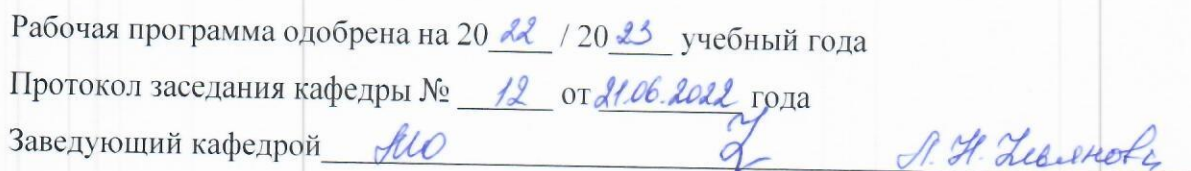 Рабочая программа одобрена на 2022 / 2023 учебный года
Протокол заседания кафедры № 12 от 21.06.2022 года
Заведующий кафедрой Л. Н.